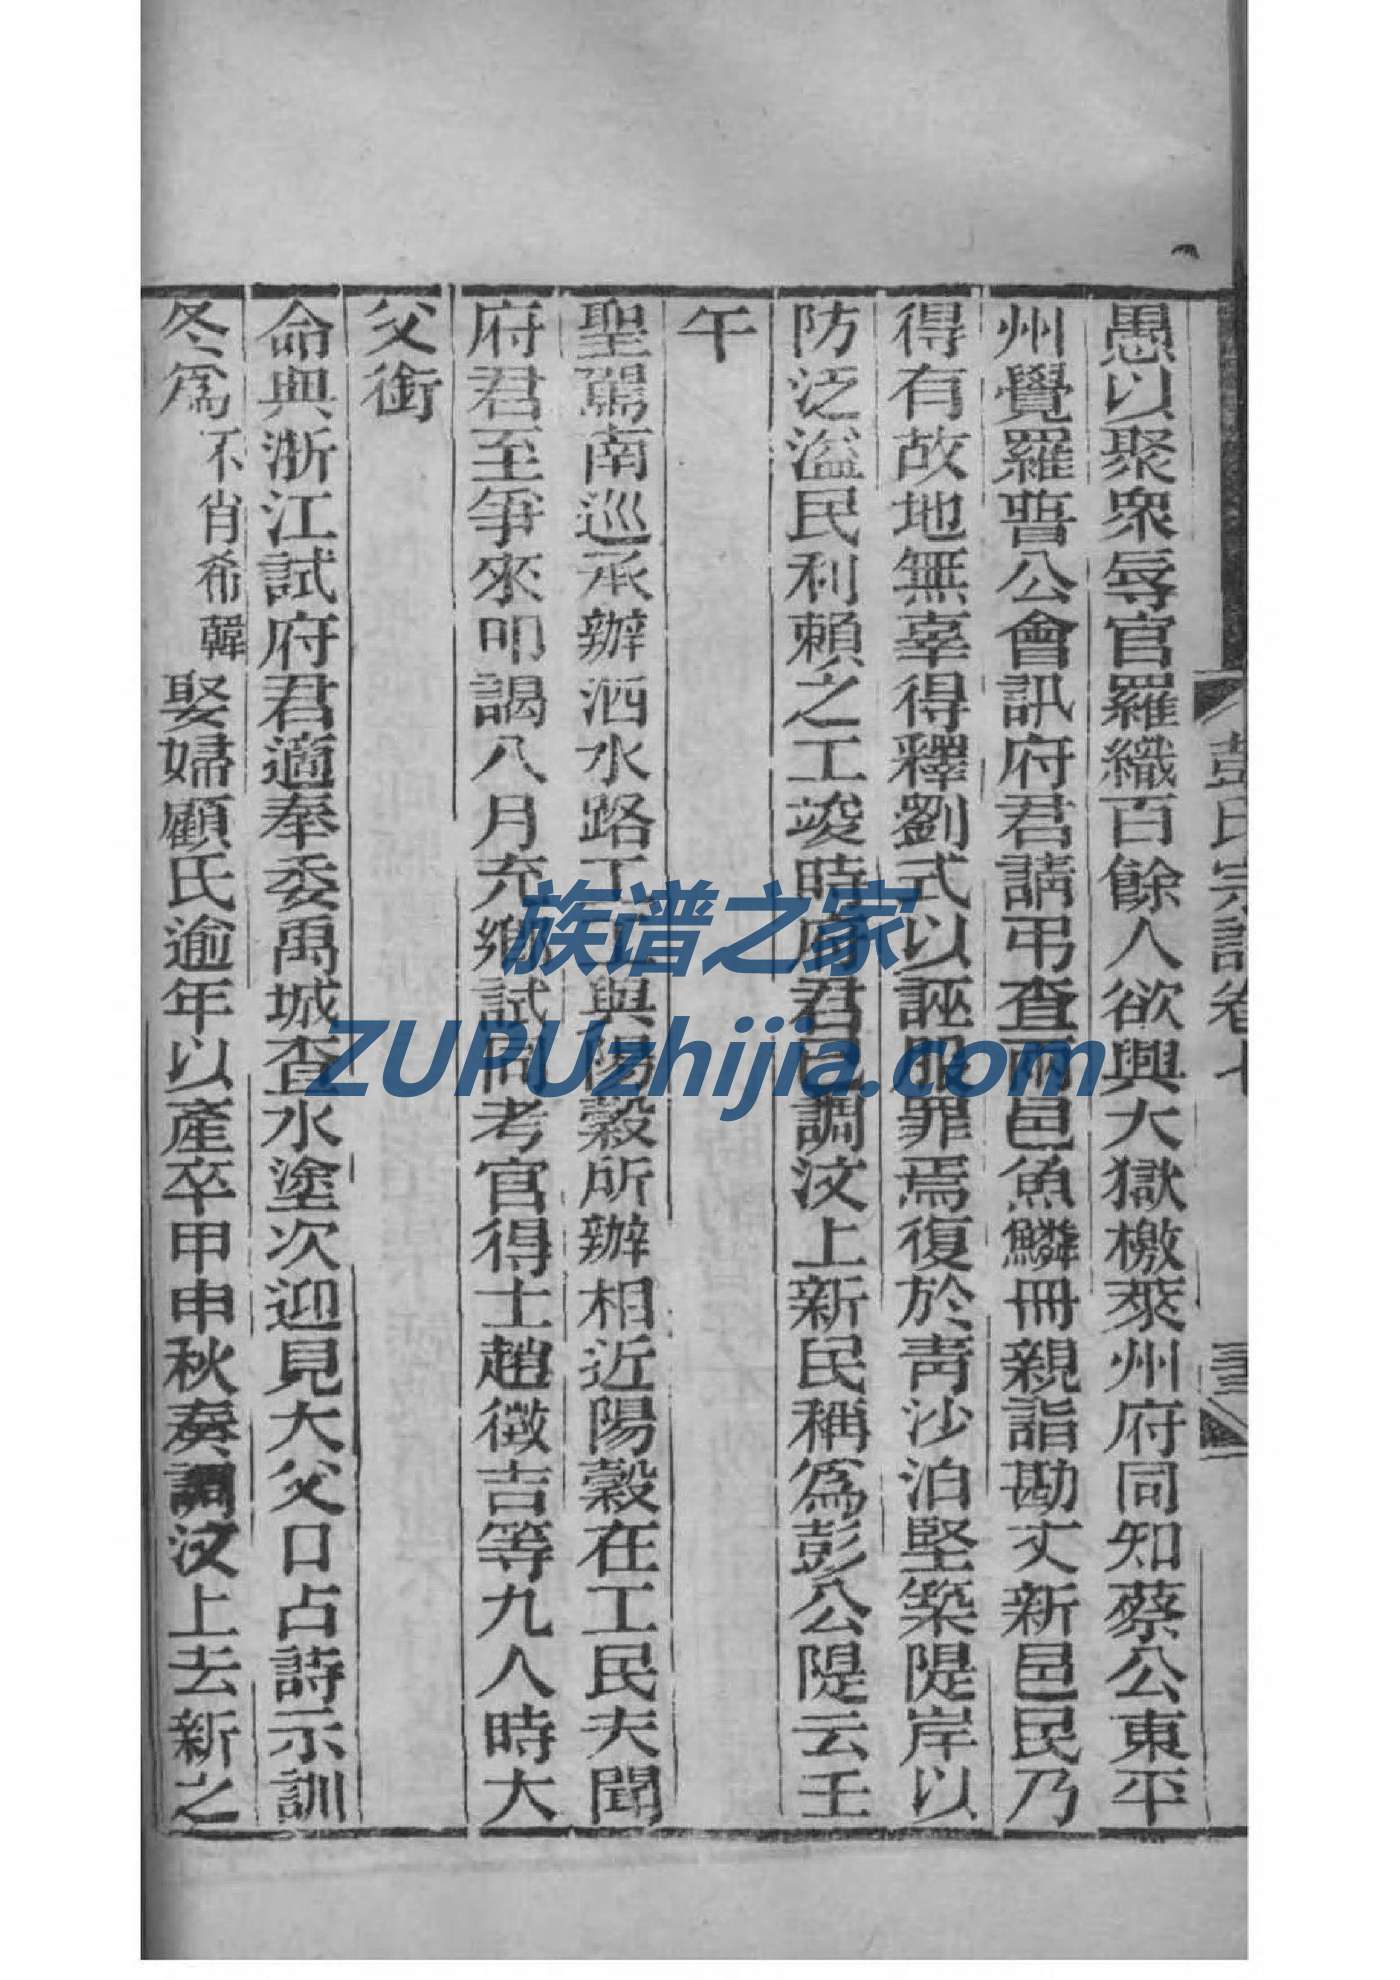 愚以聚衆辱官羅織百餘人欲興大獄檄萊州府同知蔡公東平
州覺羅普公會訊府君請弔查兩邑魚鱗冊親詣勘丈新邑民乃
得有故地無辜得釋劉式以誣服罪焉復於靑沙泊堅築隄岸以
防泛溢民利賴之工竣時府君已調汶上新民稱爲彭公隄云壬
午
聖駕南巡承辦泗水路工工與陽穀所辦相近陽穀在工民夫聞
府君至爭來叩謁八月充鄉試同考官得士趙徵吉等九人時大
父銜
命典浙江試府君適奉委禹城查水塗次迎見大父口占詩示訓
冬爲不肖希韓娶婦顧氏逾年以產卒甲申秋奏調汶上去新之
彭氏宗譜卷七
族谱之家
ZUPUzhijia.com